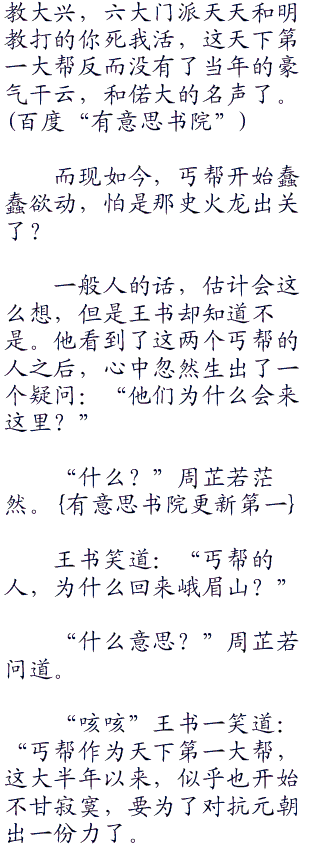 教大兴，六大门派天天和明
教打的你死我活，这天下第
一大帮反而没有了当年的豪
气干云，和偌大的名声了。
(百度“有意思书院”)
而现如今，丐帮开始蠢
蠢欲动，怕是那史火龙出关
了？
一般人的话，估计会这
么想，但是王书却知道不
是。他看到了这两个丐帮的
人之后，心中忽然生出了一
个疑问：“他们为什么会来
这里？”
“什么？”周芷若茫
然。{有意思书院更新第一}
王书笑道：“丐帮的
人，为什么回来峨眉山？”
“什么意思？”周芷若
问道。
“咳咳”王书一笑道：
“丐帮作为天下第一大帮，
这大半年以来，似乎也开始
不甘寂寞，要为了对抗元朝
出一份力了。